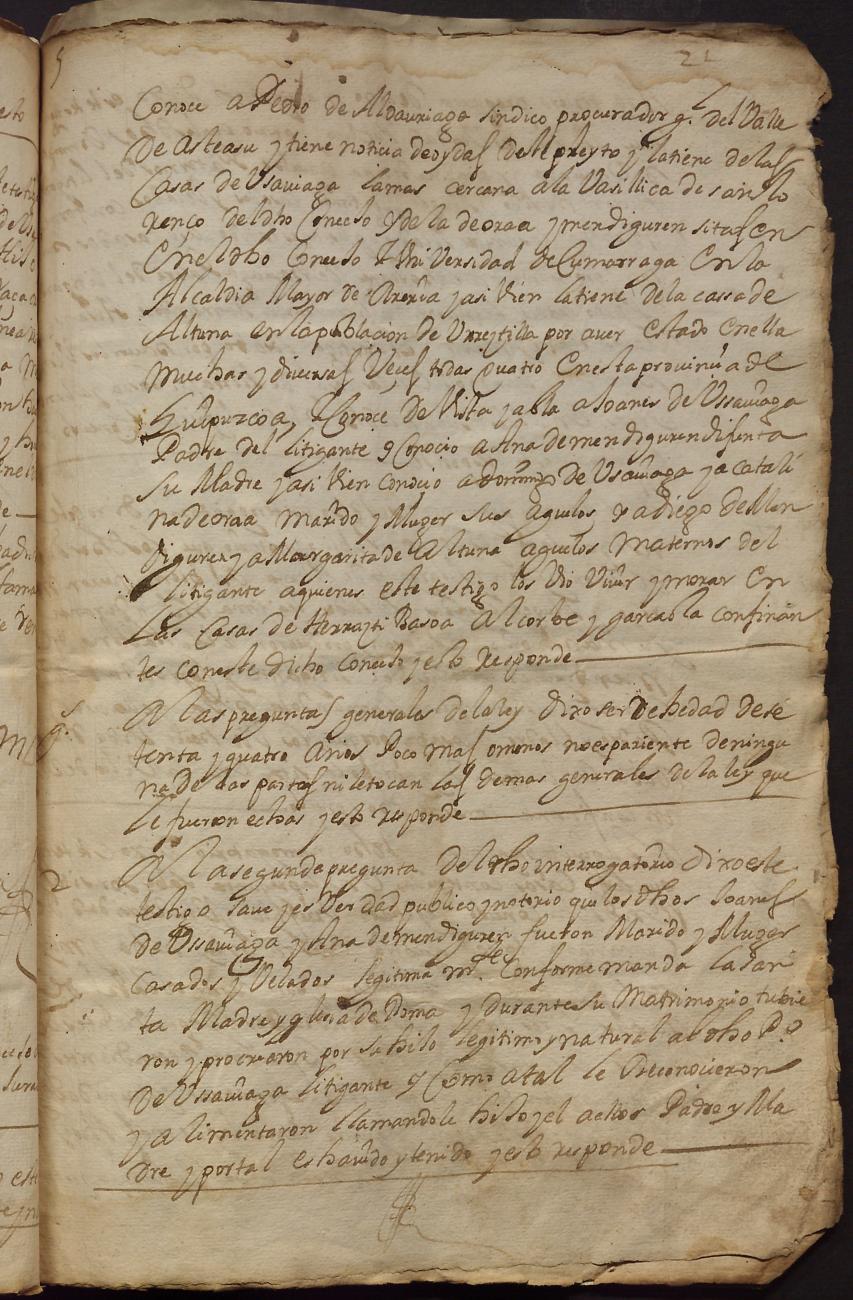 21
Conoce a Pedro de Aldauriaga sindico procurador g.l del Valle
De asteasu y tiene noticia de oydas deste pleyto y la tiene de las
Casas de Usaviaga la mas cercana a la Vasilica de san lo
renço del dho Conceso y de la de oraa y mendiguren sitas en
En el dho Conceso E Uniuersidad de Cumarraga En la
Alcaldia Mayor de Areria y asi vien la tiene de la cassa de
Altuna en la poblacion de Urreytilla por auer estado en ella
muchas y diuersas Veces todas quatro En esta prouinçia de
Guipuzcoa, E Conoce de Vista y abla a Joanes de Ussauiaga
Padre del litigante y Conocio a Ana de mendiguren difunta
su Madre y asi vien conocio a Domingo de Usauiaga y a catali
na de oraa marido y Muger sus aguelos y a diego de Men
diguren y a Margarita de Altuna aguelos maternos del
litigante a quienes este testigo los vio viuir y morar en
Las Casas de Herrayti Basoa Alcorbe y garcabla confinan
tes con este dicho conceso y esto responde
g.s
A las preguntas generales de la ley dixo ser de hedad de sé
tenta y quatro años Poco mas o menos no es pariente de ningu
na de las partes ni le tocan las demas generales de la ley que
le fueron echas y esto responde
2
A la segunda pregunta del dho interrogatorio dixo este
testigo saue y es Verdad publico y notorio que los dhos Joanes
de Ussauiaga y Ana de mendiguren fueron Marido y Muger
Casados y Velados legitima m.te Conforme manda la san
ta Madre yglesia de Roma y Durante su Matrimonio tubie
ron y procrearon por su hijo legitimo y natural al dho P.o
De Ussauiaga litigante y Como a tal le Reconocieron
y alimentaron llamandole hijo y el a ellos Padre y Ma
dre y por tal es hauido y tenido y esto responde